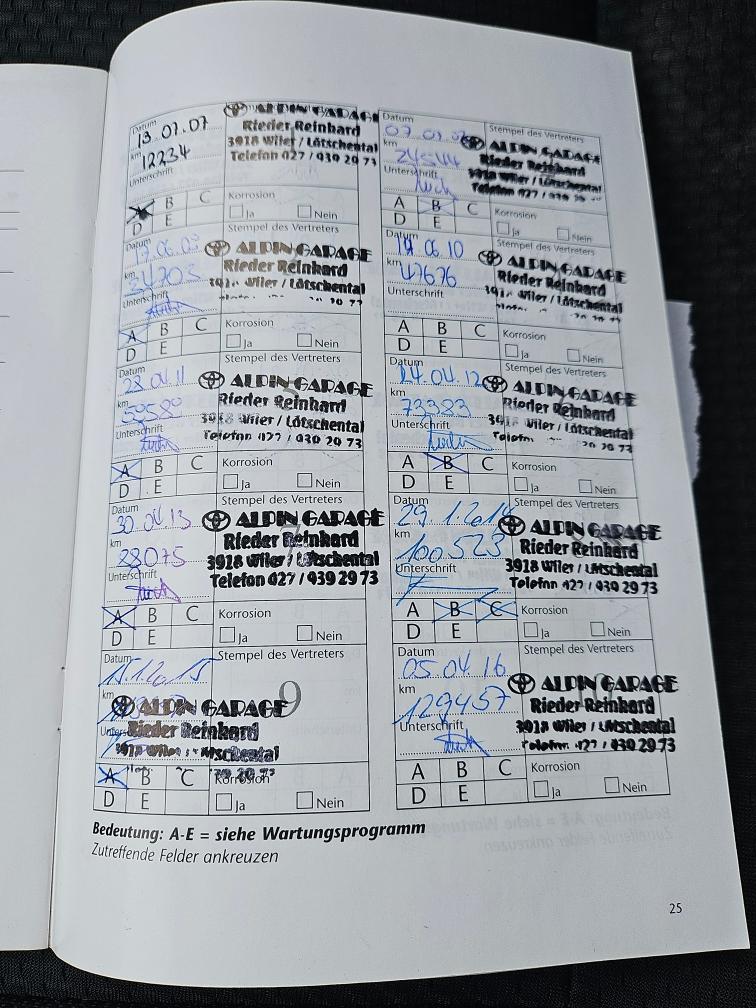 Datum
13.07.07
ALPIN GARAGE
Rieder Reinhard
km
12234
3918 Wiler / Lötschental
Telefon 027 / 939 29 73
Unterschrift
A B C
D E
Korrosion
Ja Nein
Datum
Stempel des Vertreters
ALPIN GARAGE
km
Rieder Reinhard
3918 Wiler / Lötschental
Unterschrift
Telefon
A B C
D E
Korrosion
Ja Nein
Datum
17.06.09
Stempel des Vertreters
ALPIN GARAGE
km
34703
Rieder Reinhard
Wiler / Lötschental
Unterschrift
A B C
D E
Korrosion
Ja Nein
Datum
06 10
Stempel des Vertreters
ALPIN GARAGE
km
47676
Rieder Reinhard
Wiler / Lötschental
Unterschrift
A B C
D E
Korrosion
Ja Nein
Datum
28.04.11
Stempel des Vertreters
ALPIN GARAGE
km
Rieder Reinhard
3918 Wiler / Lötschental
Unterschrift
Telefon 027 / 939 29 73
A B C
D E
Korrosion
Ja Nein
Datum
24.04.12
Stempel des Vertreters
ALPIN GARAGE
km
73383
Rieder Reinhard
3918 Wiler / Lötschental
Unterschrift
Telefon
A B C
D E
Korrosion
Ja Nein
Datum
30.04.13
Stempel des Vertreters
ALPIN GARAGE
km
88075
Rieder Reinhard
3918 Wiler / Lötschental
Unterschrift
Telefon 027 / 939 29 73
A B C
D E
Korrosion
Ja Nein
Datum
29.1.2014
Stempel des Vertreters
ALPIN GARAGE
km
100523
Rieder Reinhard
3918 Wiler / Lötschental
Unterschrift
Telefon 027 / 939 29 73
A B C
D E
Korrosion
Ja Nein
Datum
15.1.2015
Stempel des Vertreters
9
km
ALPIN GARAGE
Rieder Reinhard
3918 Wiler / Lötschental
A B C
D E
Korrosion
Ja Nein
Datum
05 04 16
Stempel des Vertreters
ALPIN GARAGE
km
129457
Rieder Reinhard
3918 Wiler / Lötschental
Unterschrift
Telefon 027 / 939 29 73
A B C
D E
Korrosion
Ja Nein
Bedeutung: A-E = siehe Wartungsprogramm
Zutreffende Felder ankreuzen
25